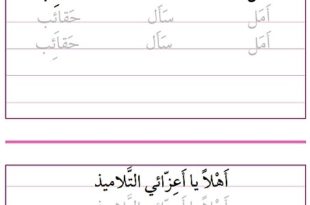 أَمَل سَأَل حَقائِب
أَمَل سَأَل حَقائِب
أَهْلاً يا أَعِزّائي التَّلاميذ